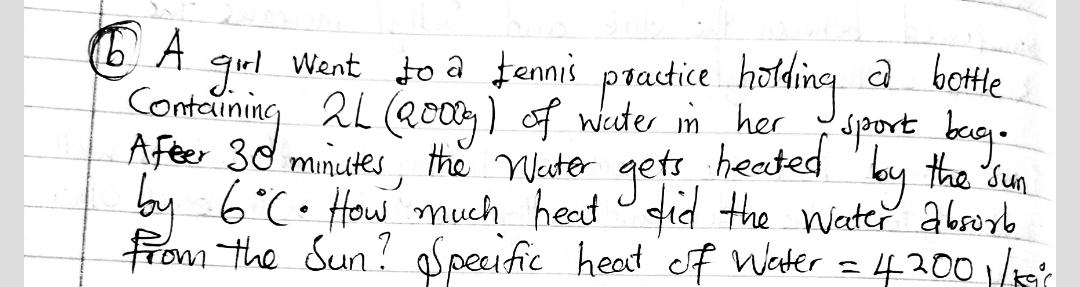 (b) A girl went to a tennis practice holding a bottle
Containing 2L (2000g) of water in her sport bag.
After 30 minutes, the water gets heated by the sun
by 6°C. How much heat did the water absorb
from the sun? Specific heat of water = 4200 J/kg°C